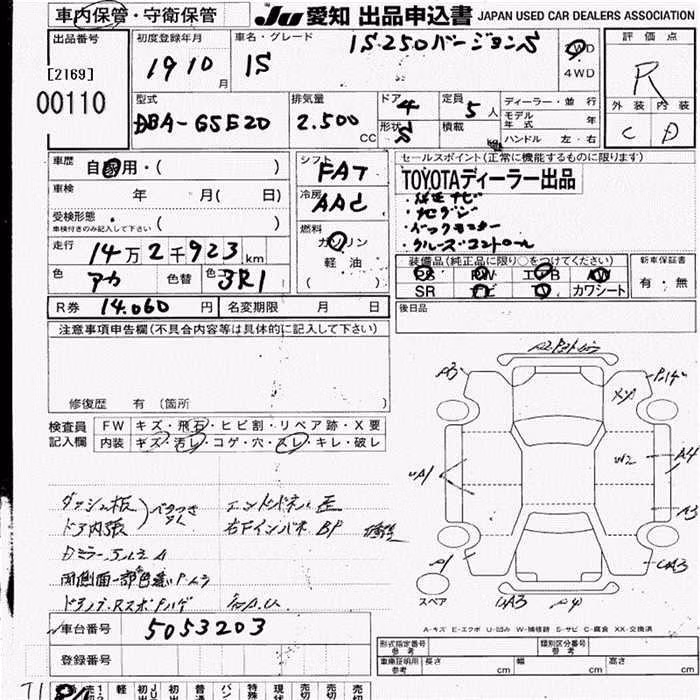 車内保管・守衛保管
JU 愛知 出品申込書 JAPAN USED CAR DEALERS ASSOCIATION
出品番号
[2169]
00110
初度登録年月
19 10 月
車名・グレード
IS 250バージョンS
IS
2WD
4WD
評価点
R
外装 内装
C D
型式
DBA-GSE20
排気量
2.500 CC
ドア 4
形状 S
定員 5 人
積載
ディーラー・並行
モデル年式
ハンドル 左・右
車歴
自家用・( )
車検
年 月( 日)
受検形態
車検付きのみ記入して下さい
( )
走行
14万2千923km
色
アカ
色替
色コード
3R1
シフト
FAT
冷房
AAC
燃料
ガソリン
軽油
( )
セールスポイント(正常に機能するものに限ります)
TOYOTAディーラー出品
・純正ナビ
・地デジ
・バックモニター
・クルーズコントロール
装備品(純正品に限り○をつけてください)
PS PW エアB AW
SR ナビ TV カワシート
新車保証書
有・無
R券 14.060 円
名変期限 月 日
後日品
注意事項申告欄(不具合内容等は具体的に記入して下さい)
修復歴 有 (箇所
検査員記入欄
FW キズ・飛石・ヒビ割・リペア跡・X要
内装 キズ・汚レ・コゲ・穴・スレ・キレ・破レ
ダッシュ板
ドア内張
ベタつき
エンドパネル 歪
右Fインパネ BP 修整
Dミラー
両側面一部色違い
A3
P1
uA1
XX
W2
A4
A3
UA3
UA3
P4
スペア
A-キズ E-エクボ U-凹み W-補修跡 S-サビ C-腐食 XX-交換済
車台番号
5053203
登録番号
形式指定番号
参考
類別区分番号
参考
車庫証明用参考
長さ cm
幅 cm
高さ cm